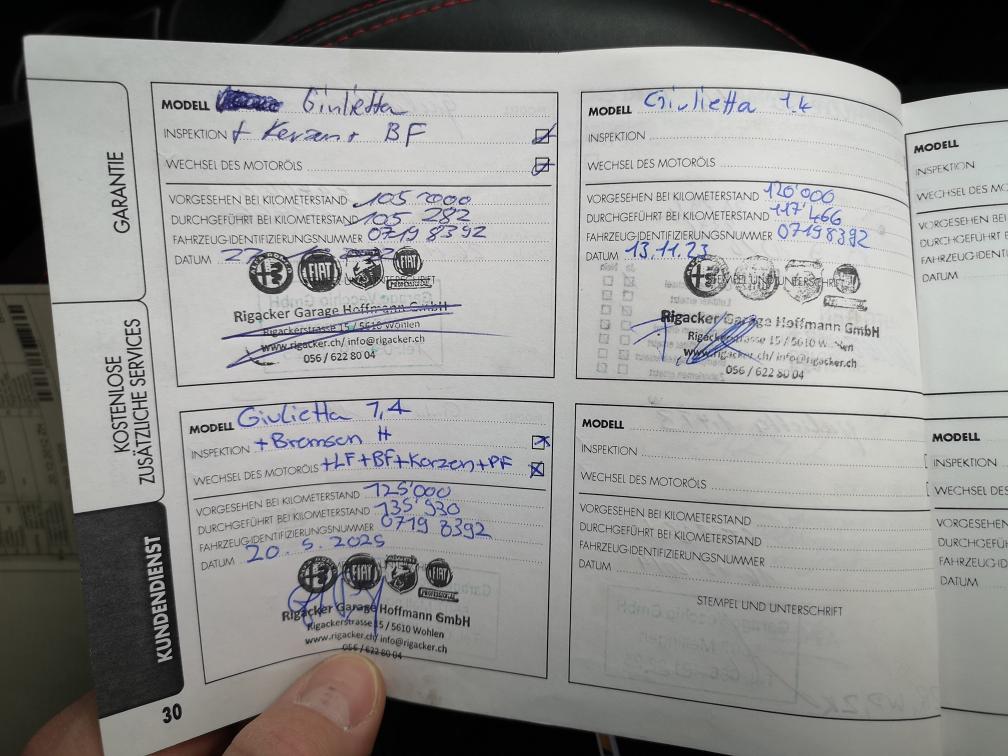 GARANTIE
KOSTENLOSE
ZUSÄTZLICHE SERVICES
KUNDENDIENST
30
MODELL Giulietta
INSPEKTION + Kerzen + BF
WECHSEL DES MOTORÖLS
VORGESEHEN BEI KILOMETERSTAND 105 000
DURCHGEFÜHRT BEI KILOMETERSTAND 105 282
FAHRZEUGIDENTIFIZIERUNGSNUMMER 0719 8392
DATUM
FIAT FIAT
PROFESSIONAL
Rigacker Garage Hoffmann GmbH
Rigackerstrasse 15 / 5610 Wohlen
www.rigacker.ch/ info@rigacker.ch
056 / 622 80 04
MODELL Giulietta 1.4
INSPEKTION
WECHSEL DES MOTORÖLS
VORGESEHEN BEI KILOMETERSTAND 120'000
DURCHGEFÜHRT BEI KILOMETERSTAND 117'466
FAHRZEUGIDENTIFIZIERUNGSNUMMER 07198392
DATUM 13.11.23
STEMPEL UND UNTERSCHRIFT
Rigacker Garage Hoffmann GmbH
Rigackerstrasse 15 / 5610 Wohlen
www.rigacker.ch/ info@rigacker.ch
056 / 622 80 04
MODELL Giulietta 1,4
INSPEKTION + Bremsen H
WECHSEL DES MOTORÖLS + LF + BF + Kerzen + PF
VORGESEHEN BEI KILOMETERSTAND 125'000
DURCHGEFÜHRT BEI KILOMETERSTAND 135'930
FAHRZEUGIDENTIFIZIERUNGSNUMMER 0719 8392
DATUM 20.5.2025
FIAT FIAT
PROFESSIONAL
Rigacker Garage Hoffmann GmbH
Rigackerstrasse 15 / 5610 Wohlen
www.rigacker.ch/ info@rigacker.ch
056 / 622 80 04
MODELL
INSPEKTION
WECHSEL DES MOTORÖLS
VORGESEHEN BEI KILOMETERSTAND
DURCHGEFÜHRT BEI KILOMETERSTAND
FAHRZEUGIDENTIFIZIERUNGSNUMMER
DATUM
STEMPEL UND UNTERSCHRIFT
MODELL
INSPEKTION
WECHSEL DES MO
VORGESEHEN BEI
DURCHGEFÜH
FAHRZEUGIDE
DATUM
MODELL
INSPEKTION
WECHSEL DES
VORGESEHEN
DURCHGEFÜH
FAHRZEUGID
DATUM